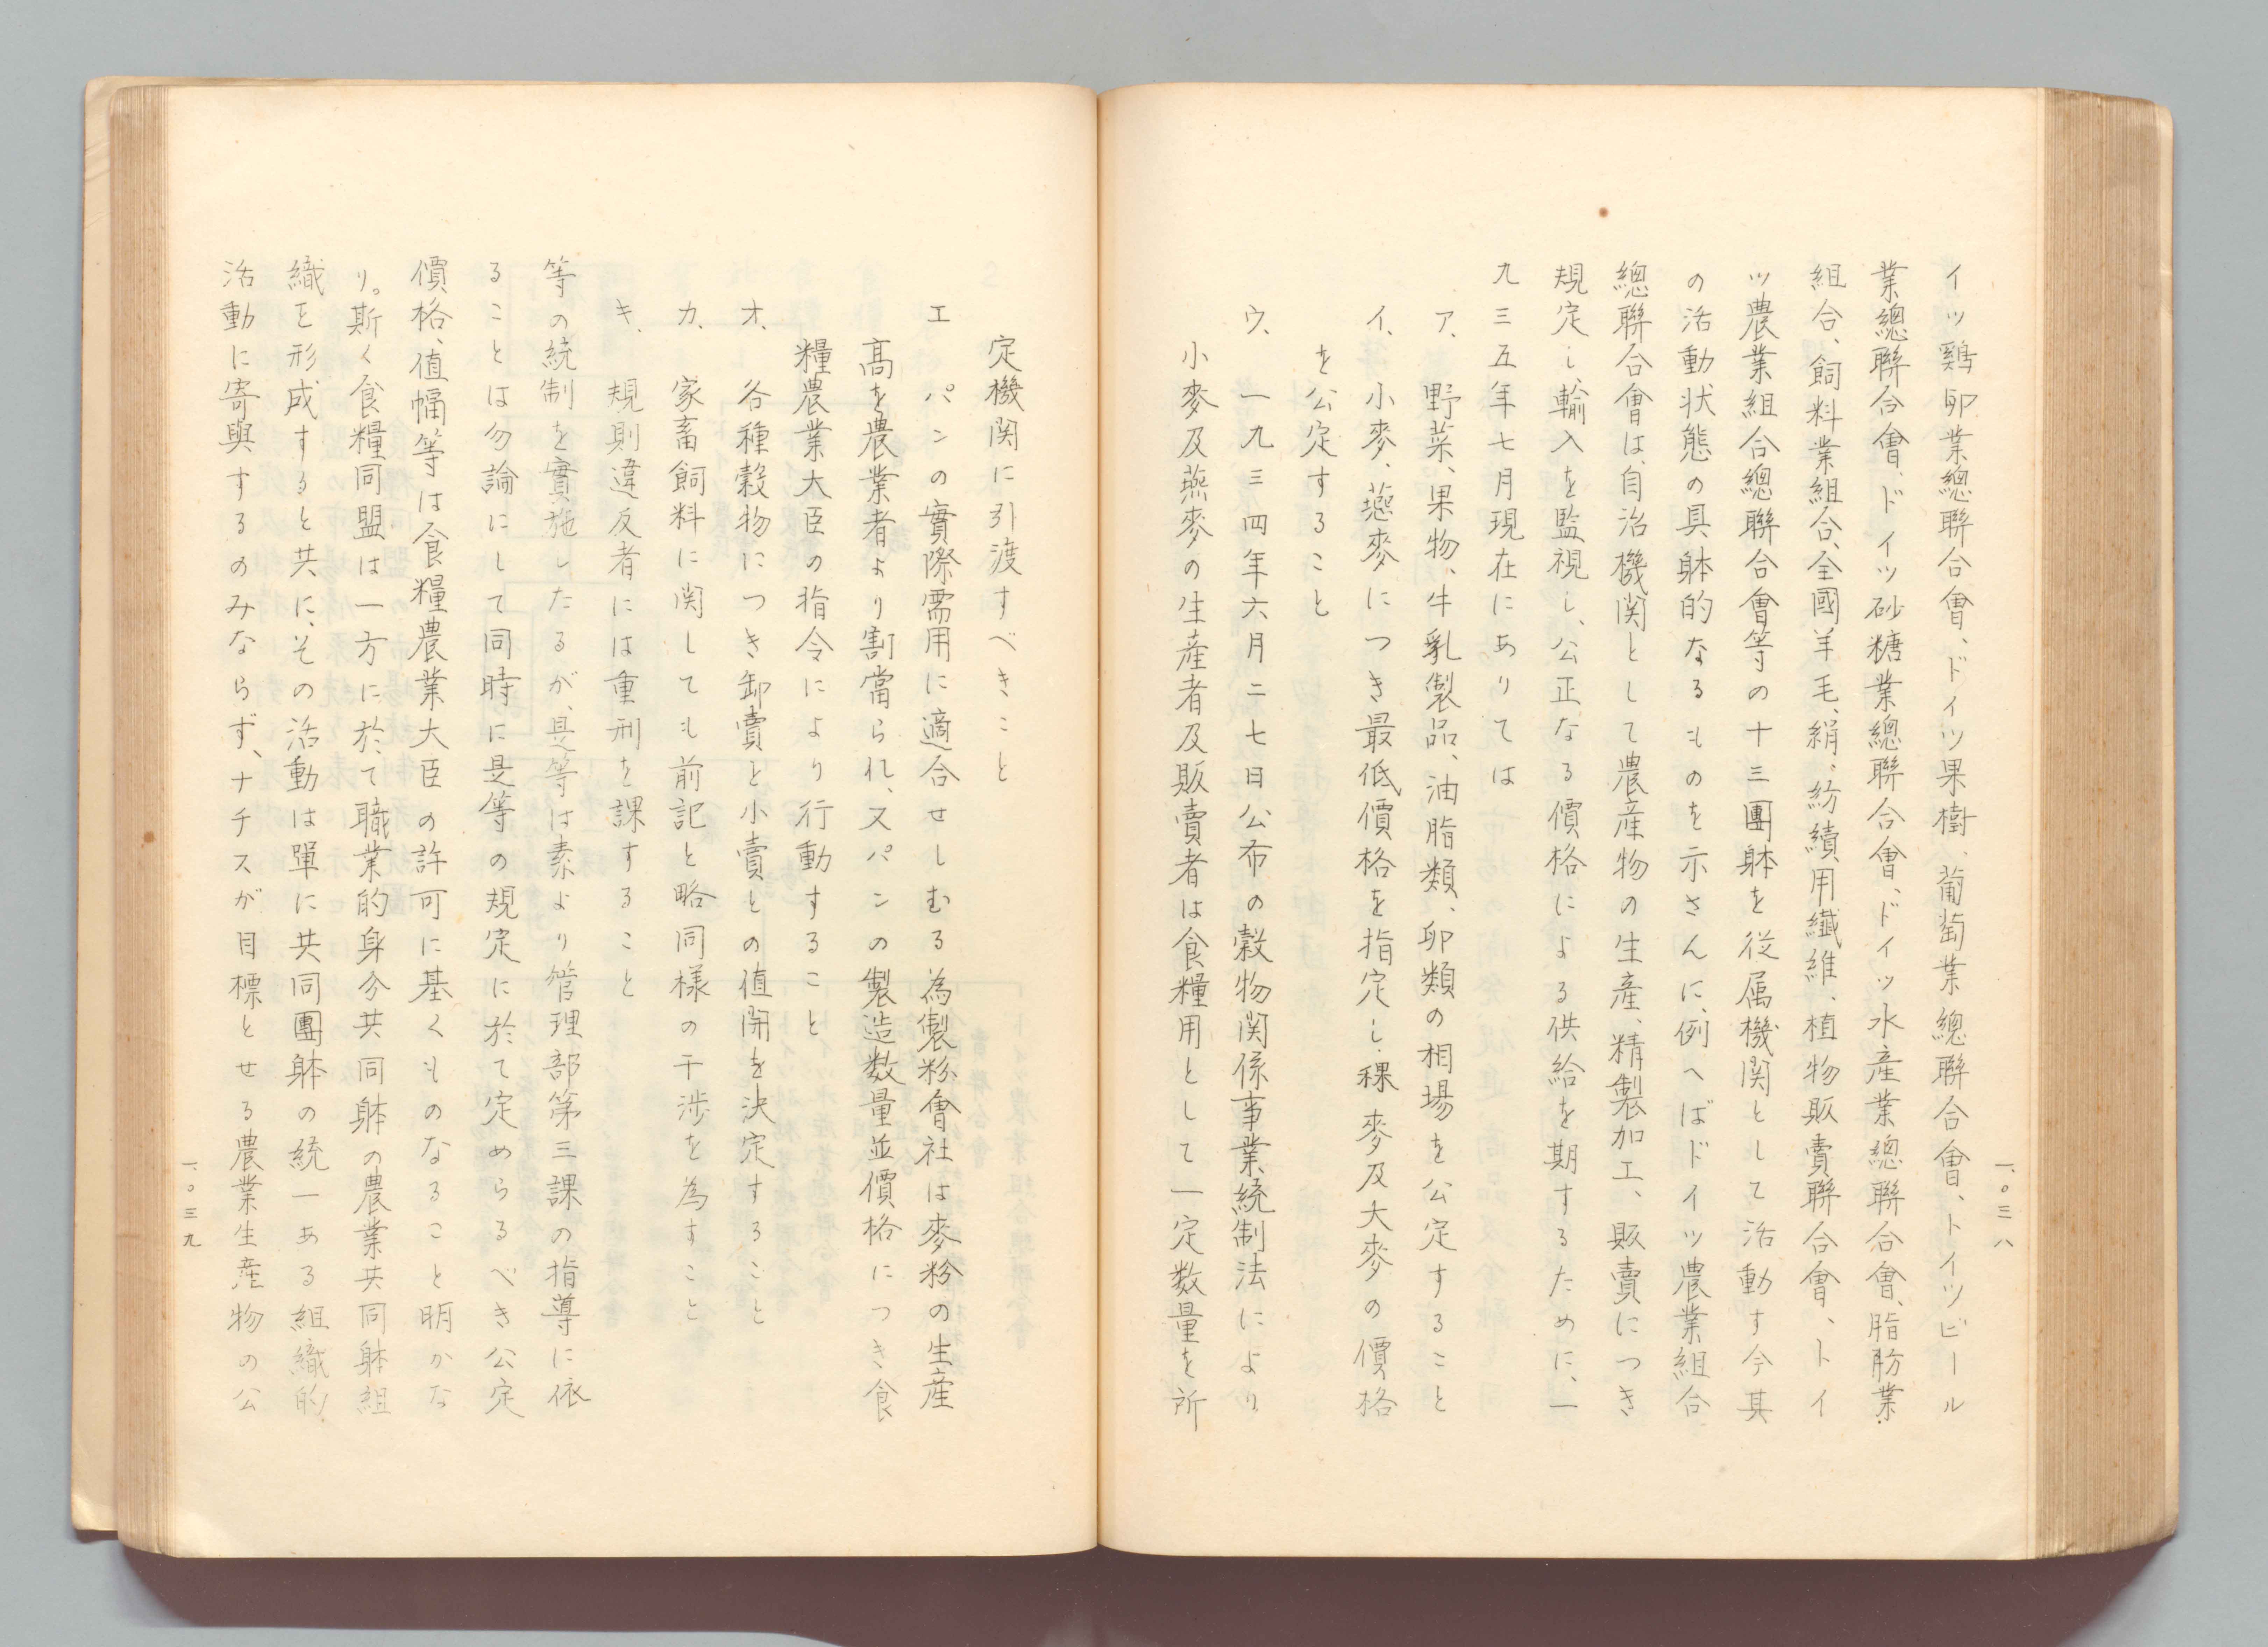 一、〇三八
イツ鷄卵業總聯合會、ドイツ果樹、葡萄業總聯合會、トイツビール
業總聯合會、ドイツ砂糖業總聯合會、ドイツ水産業總聯合會、脂肪業
組合、飼料業組合、全國羊毛、絹、紡績用纖維、植物販賣聯合會、トイ
ツ農業組合總聯合會等の十三團躰を従属機関として活動す今其
の活動状態の具躰的なるものを示さんに、例へばドイツ農業組合
總聯合會は、自治機関として農産物の生産、精製加工、販賣につき
規定し、輸入を監視し、公正なる價格による供給を期するために、一
九三五年七月現在にありては
ア、野菜、果物、牛乳製品、油脂類、卵類の相場を公定すること
イ、小麥、燕麥につき最低價格を指定し、稞麥及大麥の價格
を公定すること
ウ、一九三四年六月二七日公布の穀物関係事業統制法により
小麥及燕麥の生産者及販賣者は食糧用として一定数量を所
定機関に引渡すべきこと
エ パンの實際需用に適合せしむる為製粉會社は麥粉の生産
高を農業者より割當られ、又パンの製造数量並價格につき食
糧農業大臣の指令により行動すること
オ、各種穀物につき卸賣と小賣との値開を決定すること
カ、家畜飼料に関しても前記と略同様の干渉を為すこと
キ、規則違反者には重刑を課すること
等の統制を實施したるが、是等は素より管理部第三課の指導に依
ることは勿論にして同時に是等の規定に於て定めらるべき公定
價格、値幅等は食糧農業大臣の許可に基くものなること明かな
り。斯く食糧同盟は一方に於て職業的身分共同躰の農業共同躰組
織を形成すると共に、その活動は單に共同團躰の統一ある組織的
活動に寄與するのみならず、ナチスが目標とせる農業生産物の公
一、〇三九